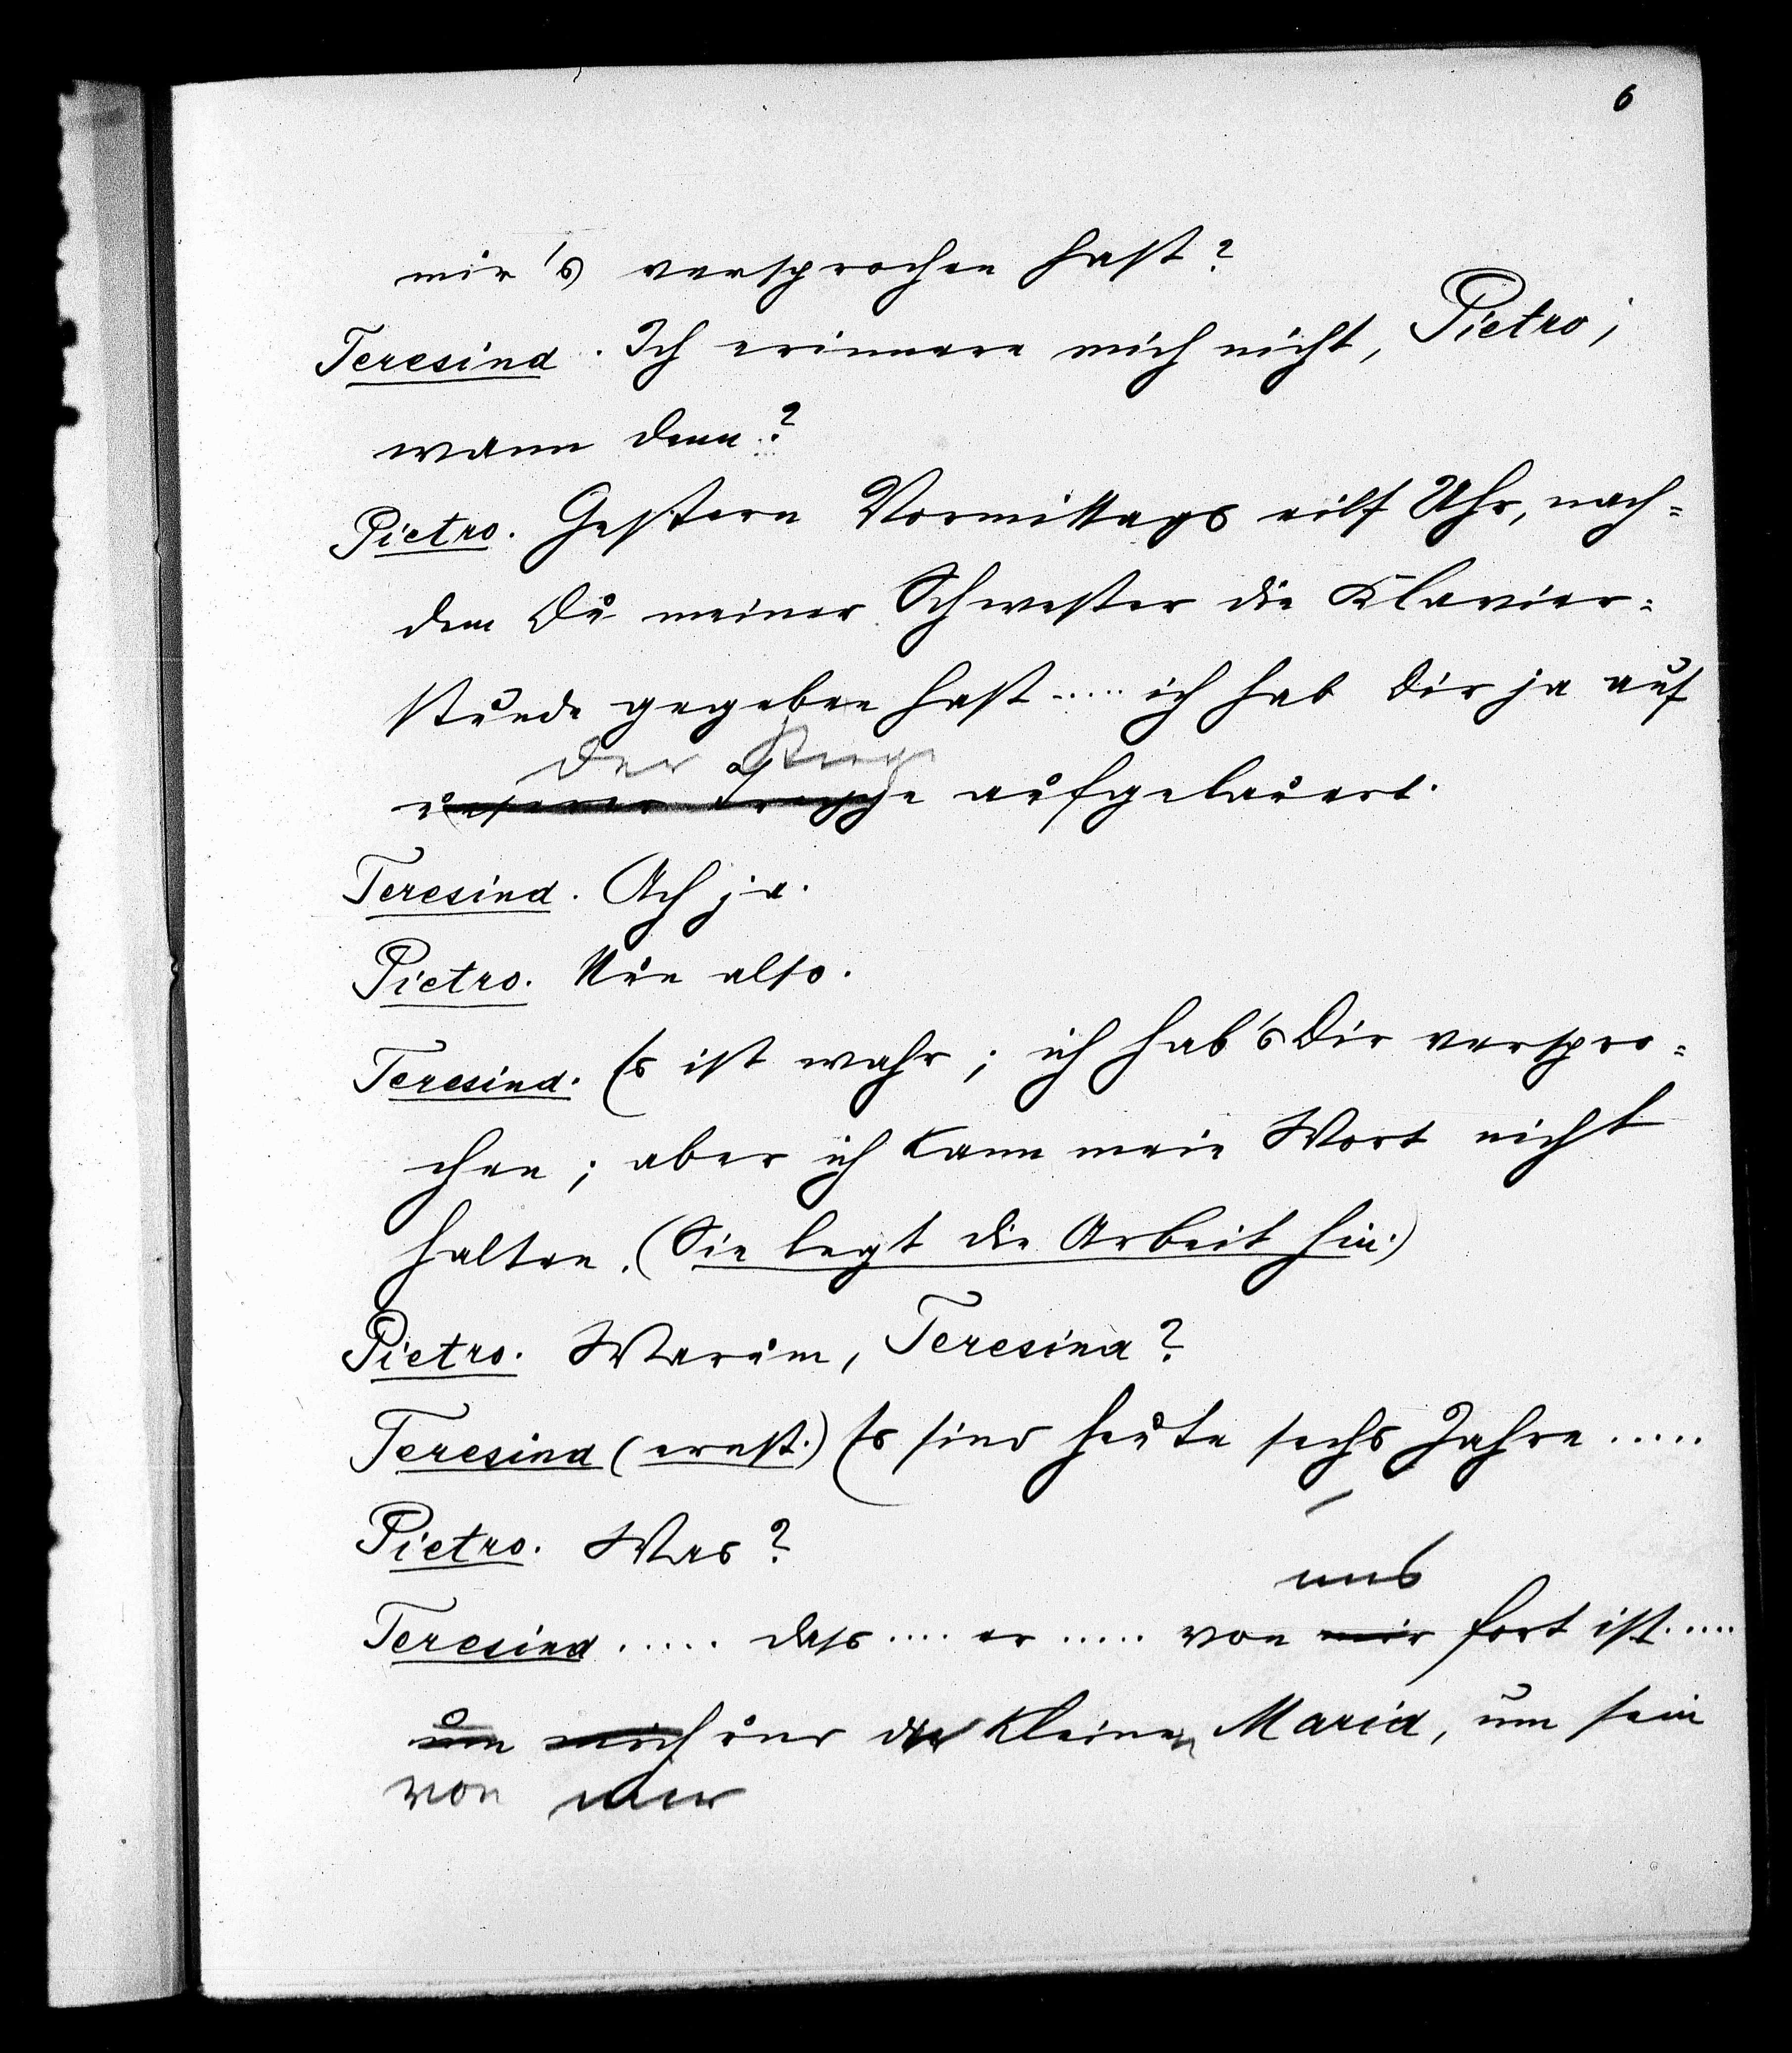 6
mir's versprochen hast?
Teresina. Ich erinnere mich nicht, Pietro;
wann denn?
Pietro. Gestern Vormittags eilf Uhr, nach=
dem Du meiner Schwester die Klavier=
stunde gegeben hast ..... ich hab Dir ja auf
der
unserer Treppe aufgelauert.
Teresina. Ach ja.
Pietro. Nun also.
Teresina. Es ist wahr; ich hab's Dir verspro=
chen; aber ich kann mein Wort nicht
halten. (Sie legt die Arbeit hin.)
Pietro. Warum, Teresina?
Teresina (ernst.) Es sind heute sechs Jahre .....
Pietro. Was?
uns
Teresina ..... dass .... er ..... von mir fort ist .....
um mich und der kleinen Maria, um sein
von